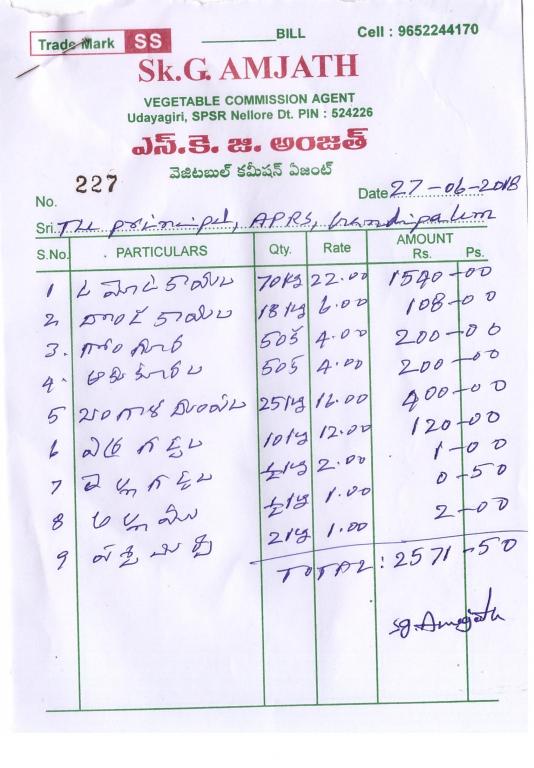 Trade Mark SS ________BILL Cell : 9652244170
Sk.G. AMJATH
VEGETABLE COMMISSION AGENT
Udayagiri, SPSR Nellore Dt. PIN : 524226
ఎస్.కె. జి. అంజత్
వెజిటబుల్ కమీషన్ ఏజంట్
No. 227 Date 27-06-2018
Sri. The principal, APRS,
S.No. PARTICULARS Qty. Rate AMOUNT Rs. Ps.
1 టమోటకాయలు 70kg 22.00 1540-00
2 దొండకాయలు 18kg 6.00 108-00
3. గోంగూర 50క 4.00 200-00
4. ఆకుకూరలు 50క 4.00 200-00
5 25kg 16.00 400-00
6 ఎర్రగడ్డలు 10kg 12.00 120-00
7 తెల్లగడ్డలు ½kg 2.00 1-00
8 అల్లము ½kg 1.00 0-50
9 పచ్చిమిర్చి 2kg 1.00 2-00
TOTAL: 2571-50